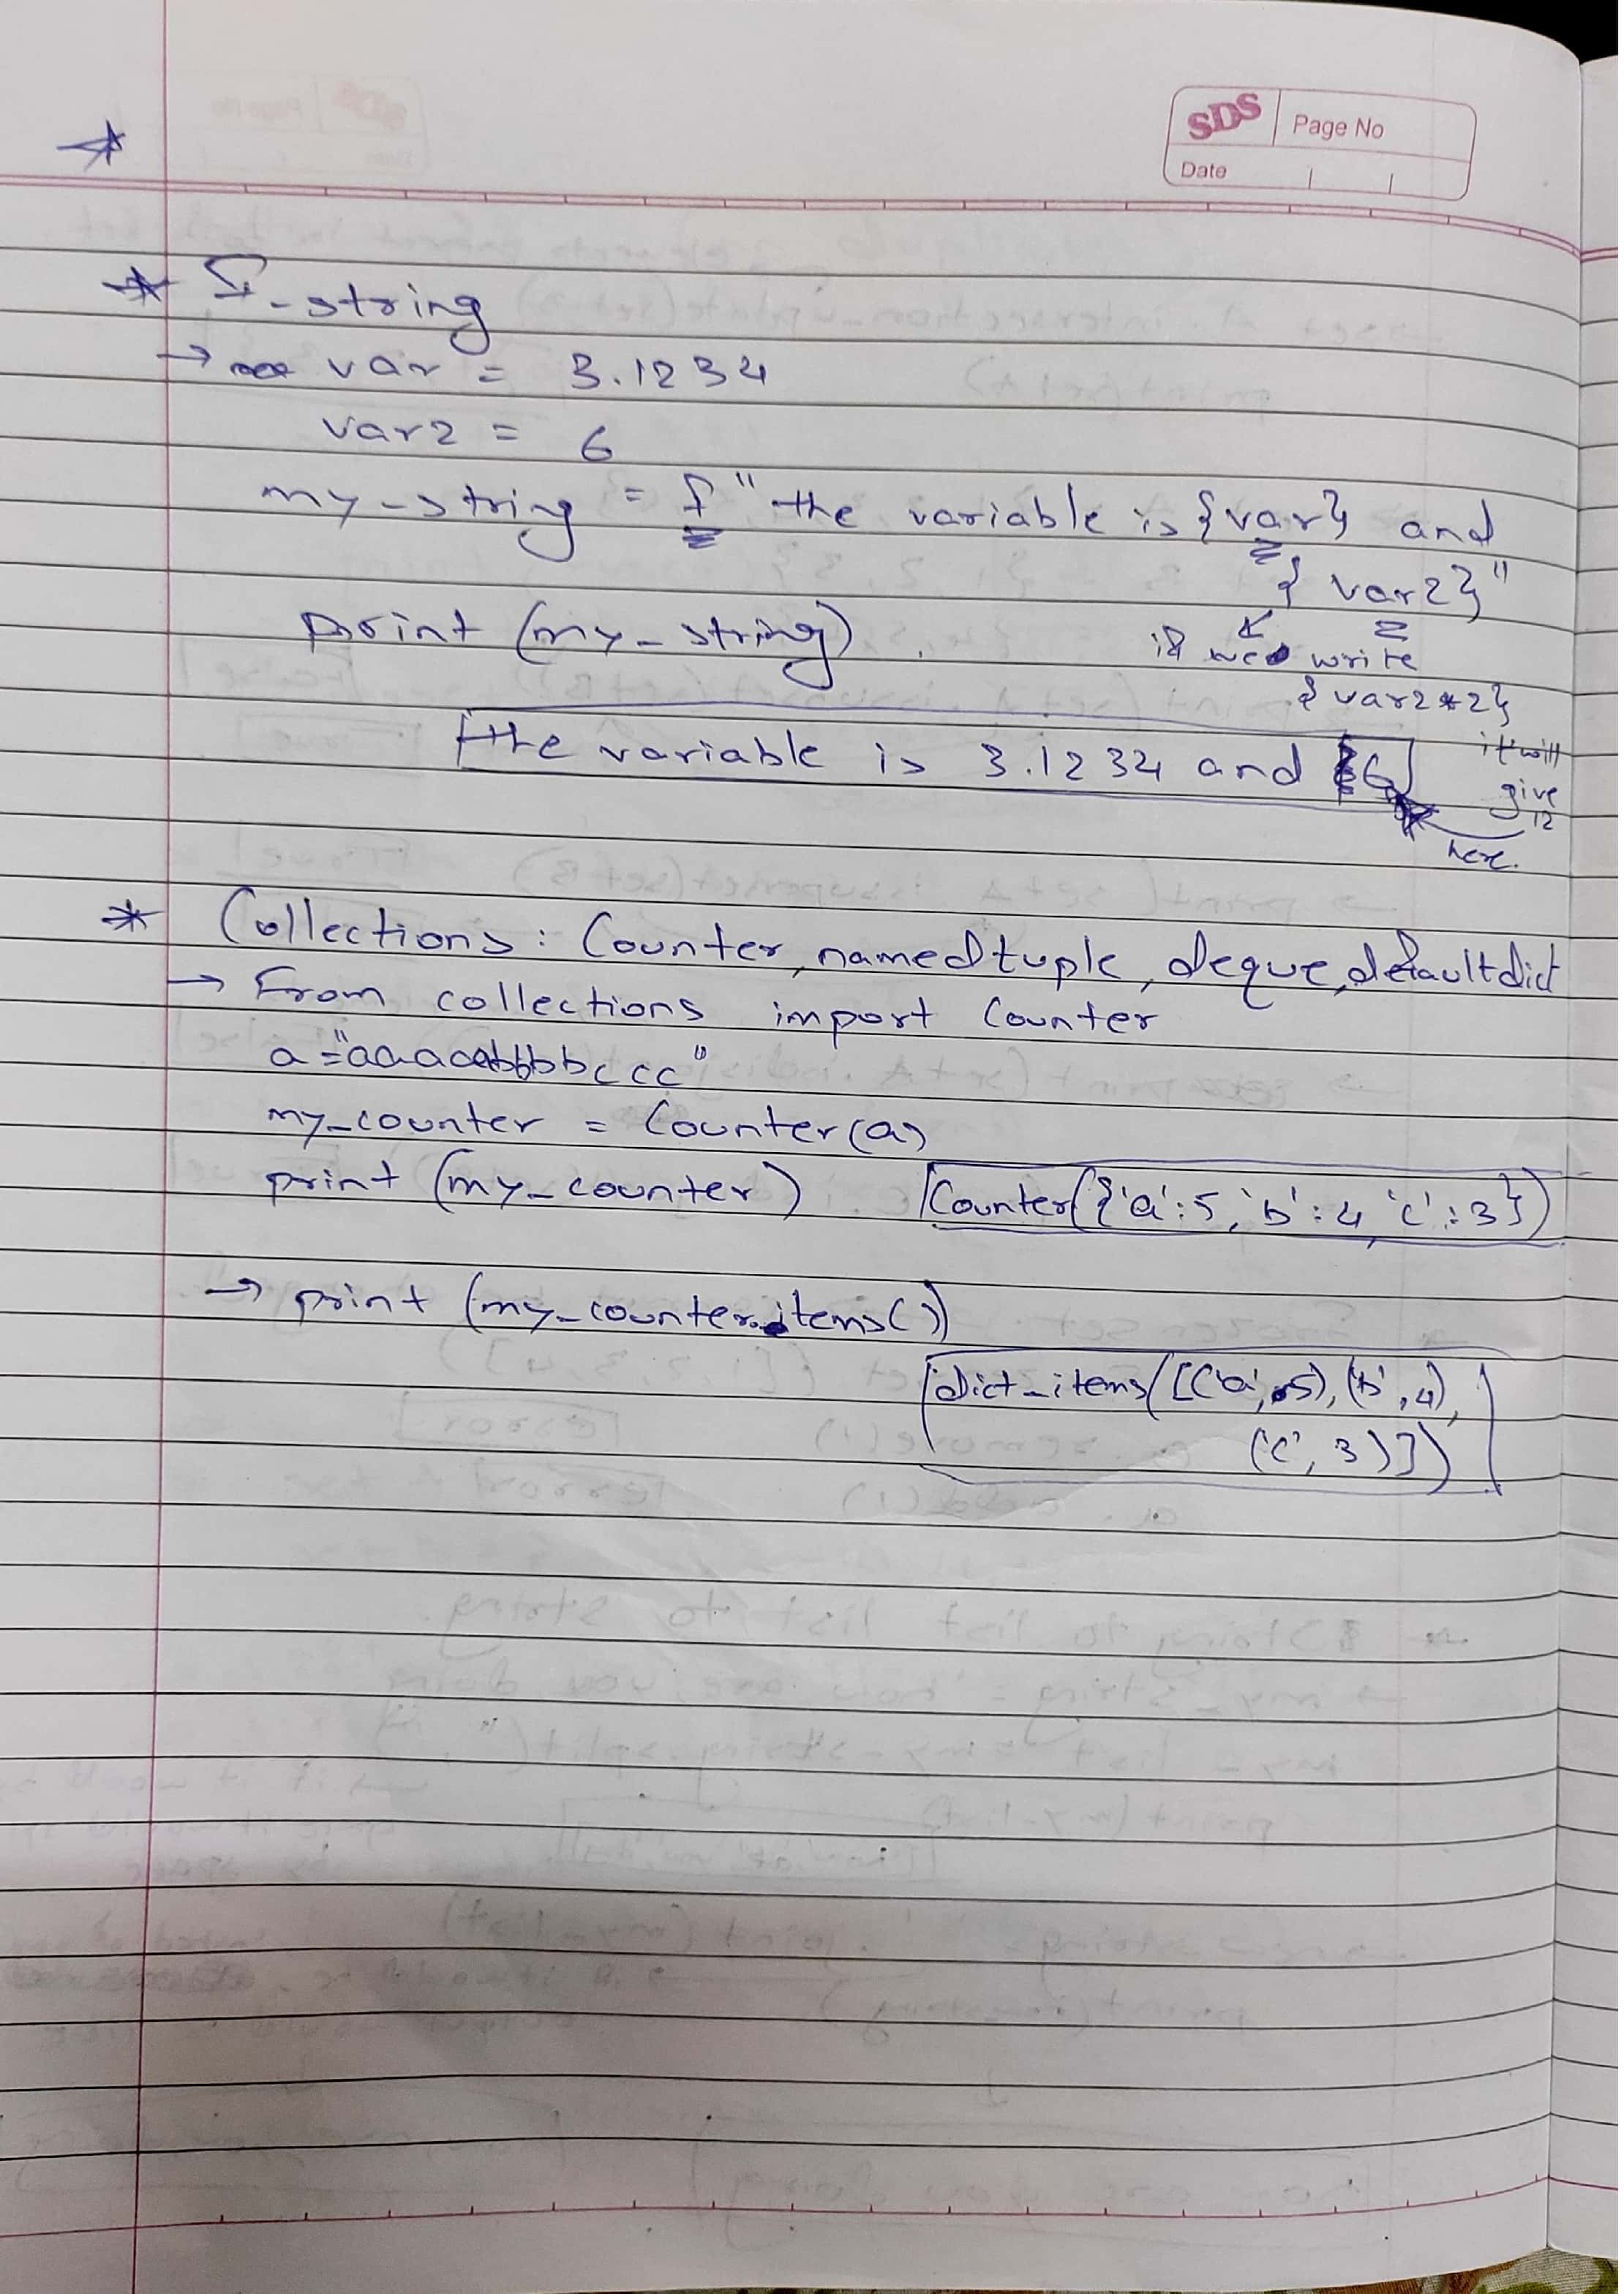 SDS Page No
Date
* f-string
→ var = 3.1234
var2 = 6
my_string = f"the variable is {var} and
{var2}"
print (my_string)
if we write
{var2*2}
the variable is 3.1234 and 6
it will
give
12
here.
* Collections: Counter, namedtuple, deque, defaultdict
→ From collections import Counter
a = "aaaaabbbbccc"
my_counter = Counter(a)
print (my_counter) Counter({'a':5, 'b':4, 'c':3})
→ print (my_counter.items())
dict_items([('a', 5), ('b', 4),
('c', 3)])